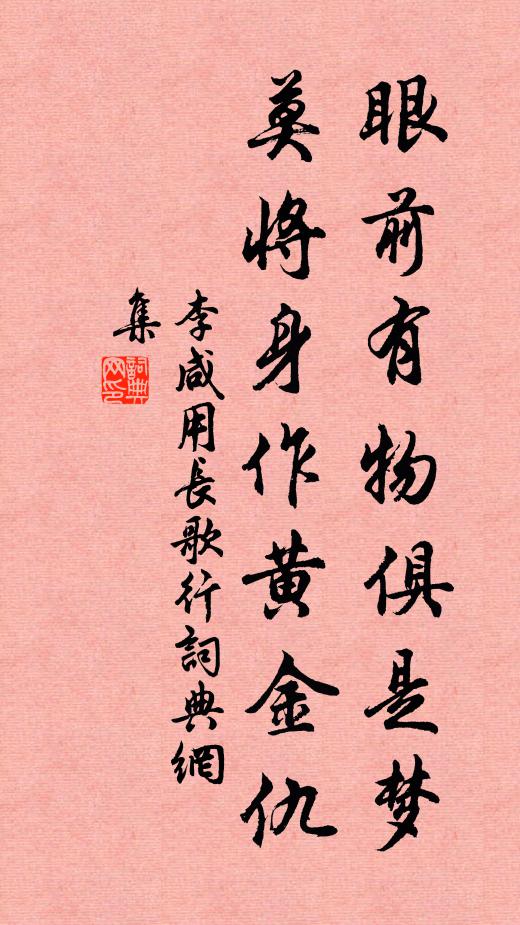 眼前有物俱是梦
莫将身作黄金仇
李咸用長歌行詞典網
集
詞典网印